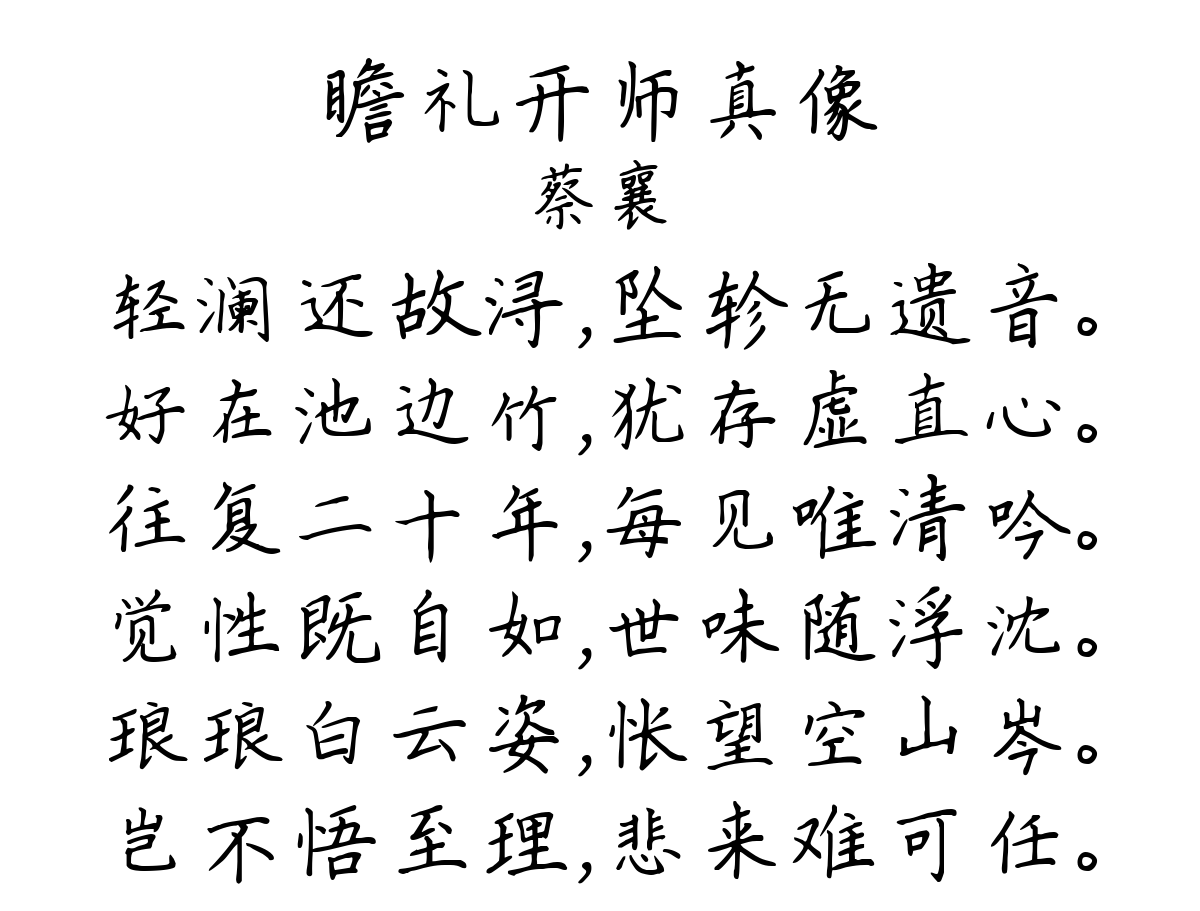 瞻礼开师真像
蔡襄
轻澜还故浔,坠轸无遗音。
好在池边竹,犹存虚直心。
往复二十年,每见唯清吟。
觉性既自如,世味随浮沈。
琅琅白云姿,怅望空山岑。
岂不悟至理,悲来难可任。